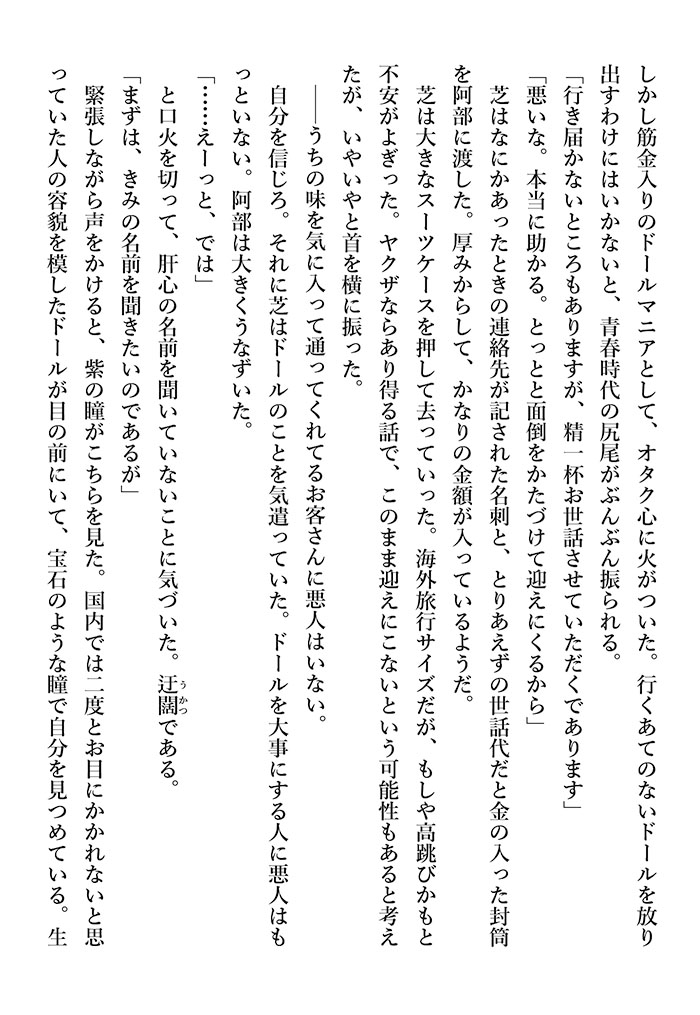 しかし筋金入りのドールマニアとして、オタク心に火がついた。行くあてのないドールを放り
出すわけにはいかないと、青春時代の尻尾がぶんぶん振られる。
「行き届かないところもありますが、精一杯お世話させていただくであります」
「悪いな。本当に助かる。とっとと面倒をかたづけて迎えにくるから」
芝はなにかあったときの連絡先が記された名刺と、とりあえずの世話代だと金の入った封筒
を阿部に渡した。厚みからして、かなりの金額が入っているようだ。
芝は大きなスーツケースを押して去っていった。海外旅行サイズだが、もしや高跳びかもと
不安がよぎった。ヤクザならあり得る話で、このまま迎えにこないという可能性もあると考え
たが、いやいやと首を横に振った。
――うちの味を気に入って通ってくれてるお客さんに悪人はいない。
自分を信じろ。それに芝はドールのことを気遣っていた。ドールを大事にする人に悪人はも
っといない。阿部は大きくうなずいた。
「……えーっと、では」
と口火を切って、肝心の名前を聞いていないことに気づいた。迂闊うかつである。
「まずは、きみの名前を聞きたいのであるが」
緊張しながら声をかけると、紫の瞳がこちらを見た。国内では二度とお目にかかれないと思
っていた人の容貌を模したドールが目の前にいて、宝石のような瞳で自分を見つめている。生